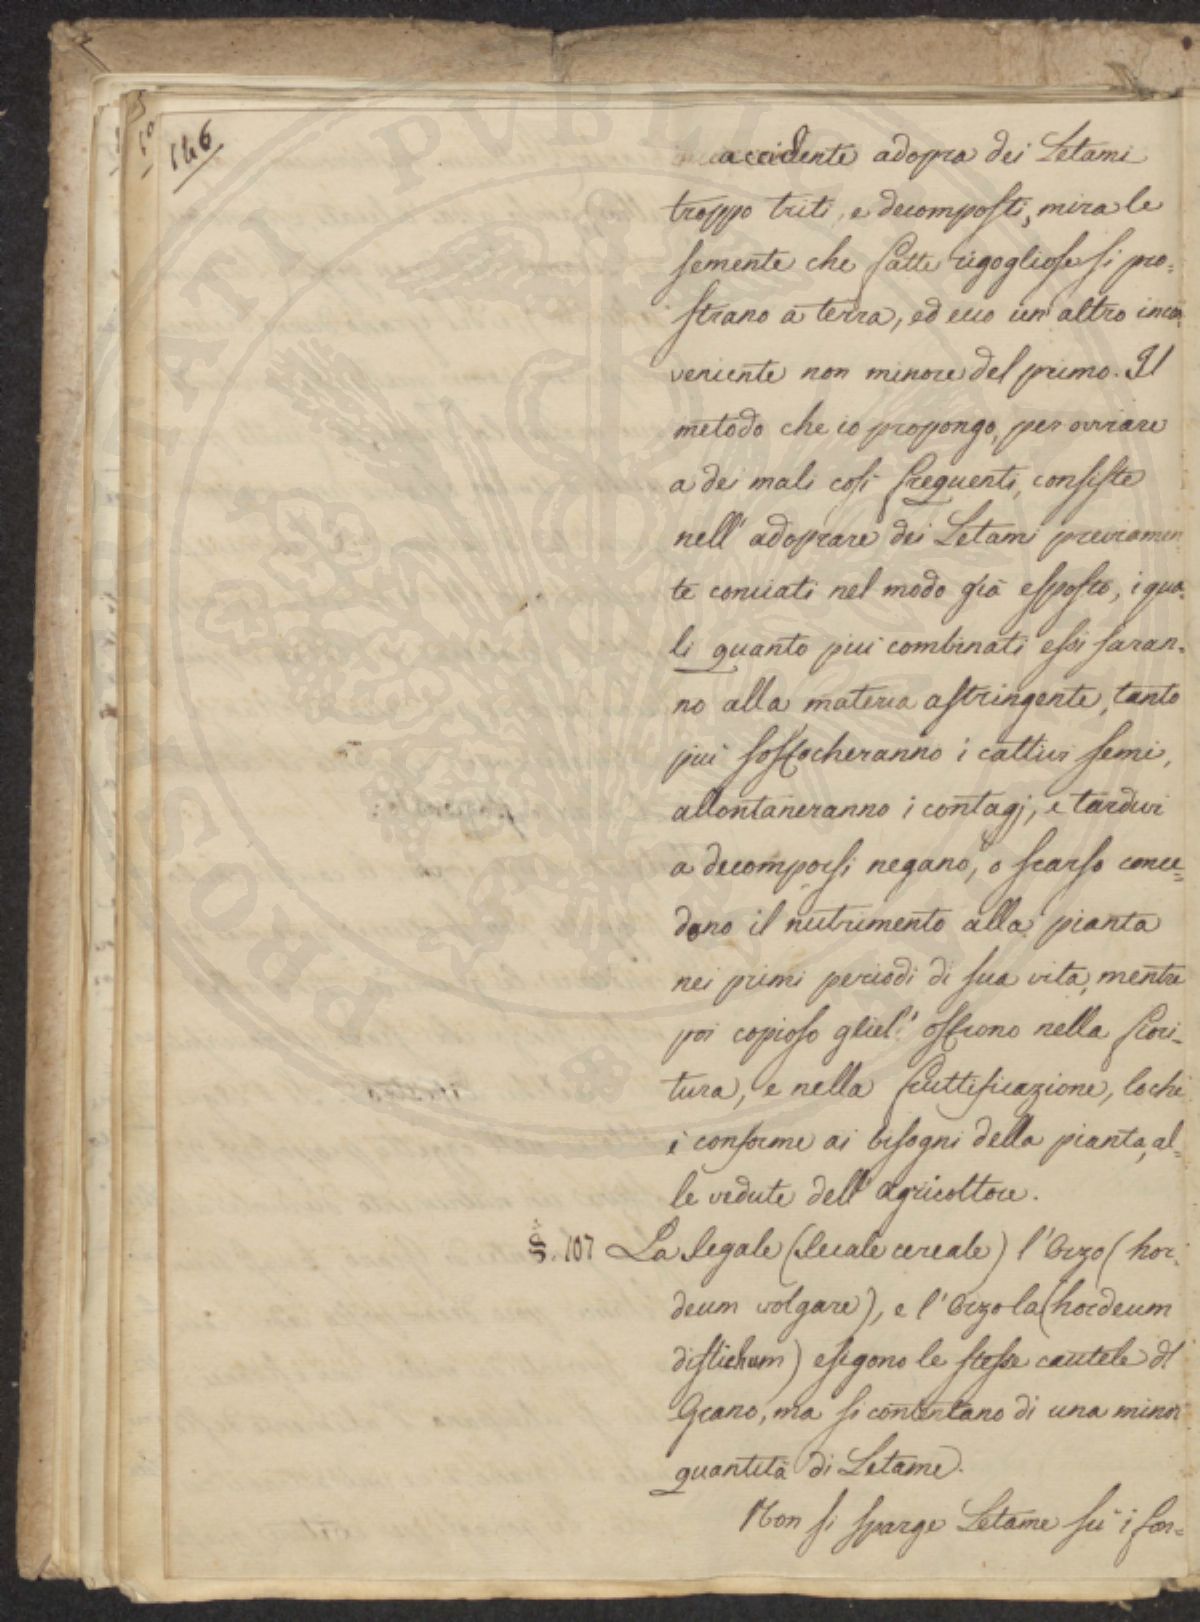 146
accidente adopra dei Letami
troppo triti, e decomposti, mira le
semente che fatte rigogliose si pro=
strano a terra, ed ecco un'altro inco=
veniente non minore del primo. Il
metodo che io propongo, per ovviare
a dei mali così frequenti, consiste
nell'adoprare dei Letami previamen
te conciati nel modo già esposto, i qua=
li quanto più combinati essi saran=
no alla materia astringente, tanto
più soffocheranno i cattivi semi,
allontaneranno i contagj, e tardivi
a decomporsi negano, o scarso conce=
dono il nutrimento alla pianta
nei primi periodi di sua vita, mentre
poi copioso gliel' offrono nella fiori=
tura, e nella fruttificazione, lochè
è conforme ai bisogni della pianta, al=
le vedute dell'agricoltore.
§. 107 La Segale (Secale cereale) l'Orzo (hor=
deum volgare), e l'Orzola (hordeum
distichum) esigono le stesse cautele dl
Grano, ma si contentano di una minor
quantità di Letame.
Non si sparge Letame su i for=
PROSPERITATI PUBLICAE